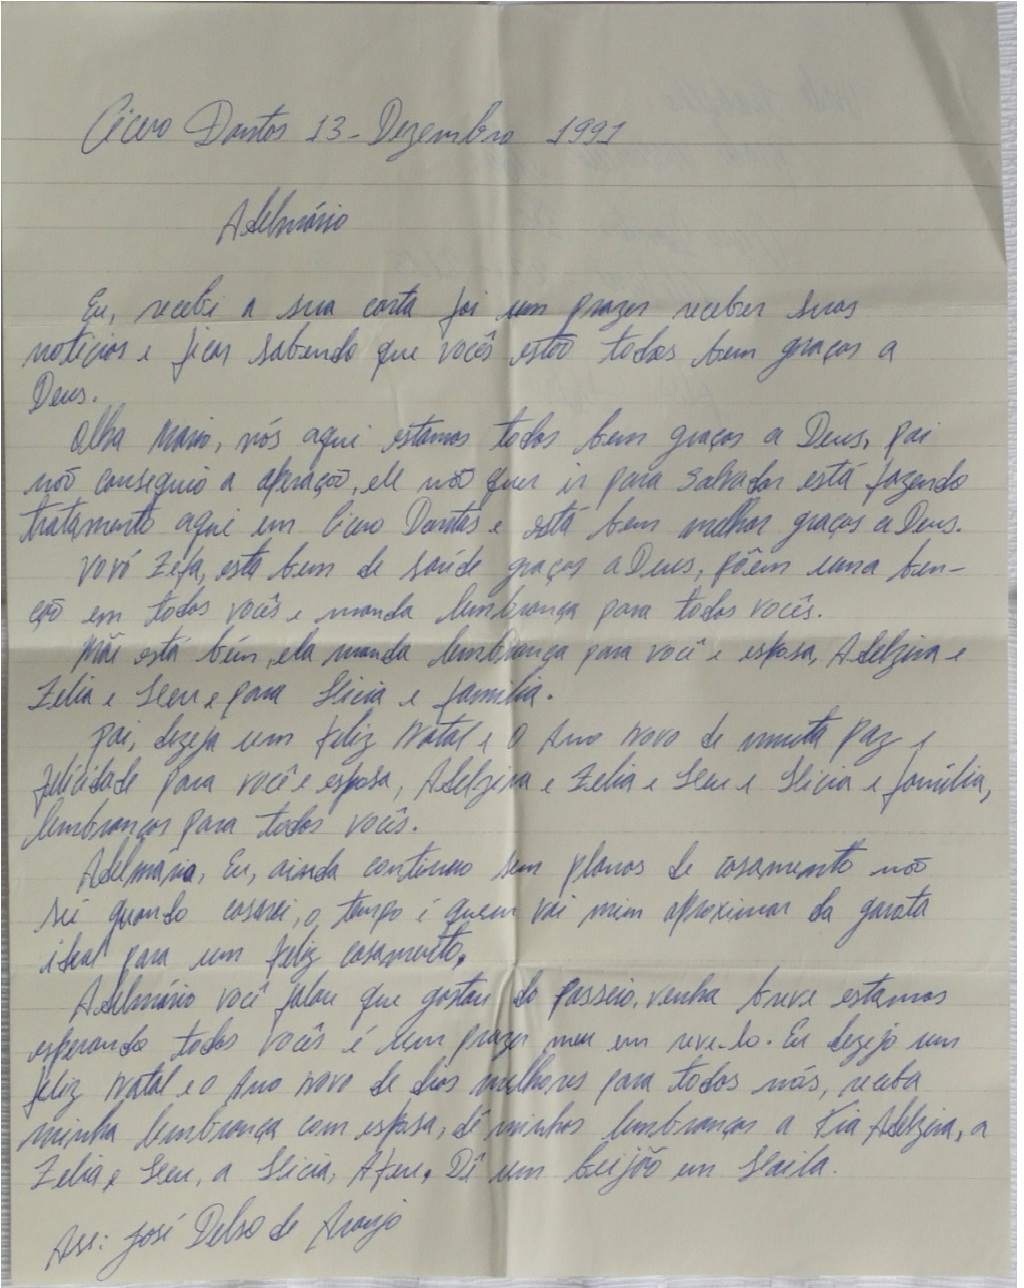 Cícero Dantas 13 - Dezembro 1991
Adelmário
Eu, recebi a sua carta foi um prazer receber suas
noticias e ficar sabendo que vocês estão todos bem graças a
Deus.
Olha Mario, nós aqui estamos todos bem graças a Deus, pai
não conseguio a operação, ele não quer ir para Salvador está fazendo
tratamento aqui em Cicero Dantas e está bem melhor graças a Deus.
Vovó Zefa, esta bem de saúde graças a Deus, põem uma ben-
ção em todos vocês e manda lembrança para todos vocês.
Mãe está bém, ela manda lembrança para você e esposa, Adelzira e
Zelia e e para e família.
Pai, dezeja um feliz Natal e o Ano Novo de muita paz e
felicidade para você e esposa, Adelzira e Zelia e e e família,
lembranças para todos vocês.
Adelmário, Eu, ainda continuo sem planos de casamento não
sei quando casarei, o tempo é quem vai mim aproximar da garota
ideal para um feliz casamento.
Adelmário você falou que gostou do passeio, venha breve estamos
esperando todos vocês é um prazer meu em reve-lo. Eu dezejo um
feliz Natal e o Ano Novo de dias melhores para todos nós, receba
minha lembrança com esposa, dê minhas lembranças a Tia Adelzira, a
Zelia e a Dê um beijão em
Ass: José Delso de Araujo